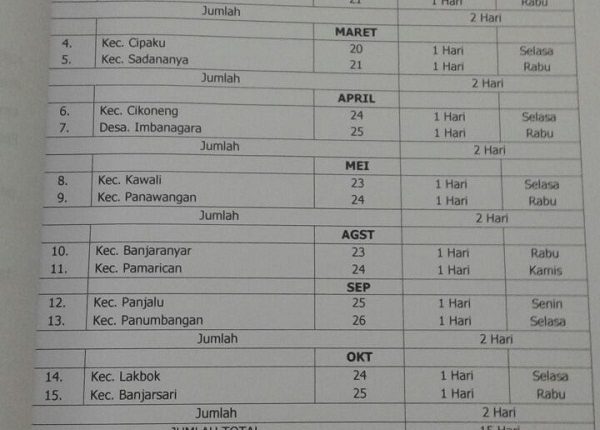 21 1 Hari Rabu
Jumlah 2 Hari
MARET
4. Kec. Cipaku 20 1 Hari Selasa
5. Kec. Sadananya 21 1 Hari Rabu
Jumlah 2 Hari
APRIL
6. Kec. Cikoneng 24 1 Hari Selasa
7. Desa. Imbanagara 25 1 Hari Rabu
Jumlah 2 Hari
MEI
8. Kec. Kawali 23 1 Hari Selasa
9. Kec. Panawangan 24 1 Hari Rabu
Jumlah 2 Hari
AGST
10. Kec. Banjaranyar 23 1 Hari Rabu
11. Kec. Pamarican 24 1 Hari Kamis
SEP
12. Kec. Panjalu 25 1 Hari Senin
13. Kec. Panumbangan 26 1 Hari Selasa
Jumlah 2 Hari
OKT
14. Kec. Lakbok 24 1 Hari Selasa
15. Kec. Banjarsari 25 1 Hari Rabu
Jumlah 2 Hari
JUMLAH TOTAL 15 Hari